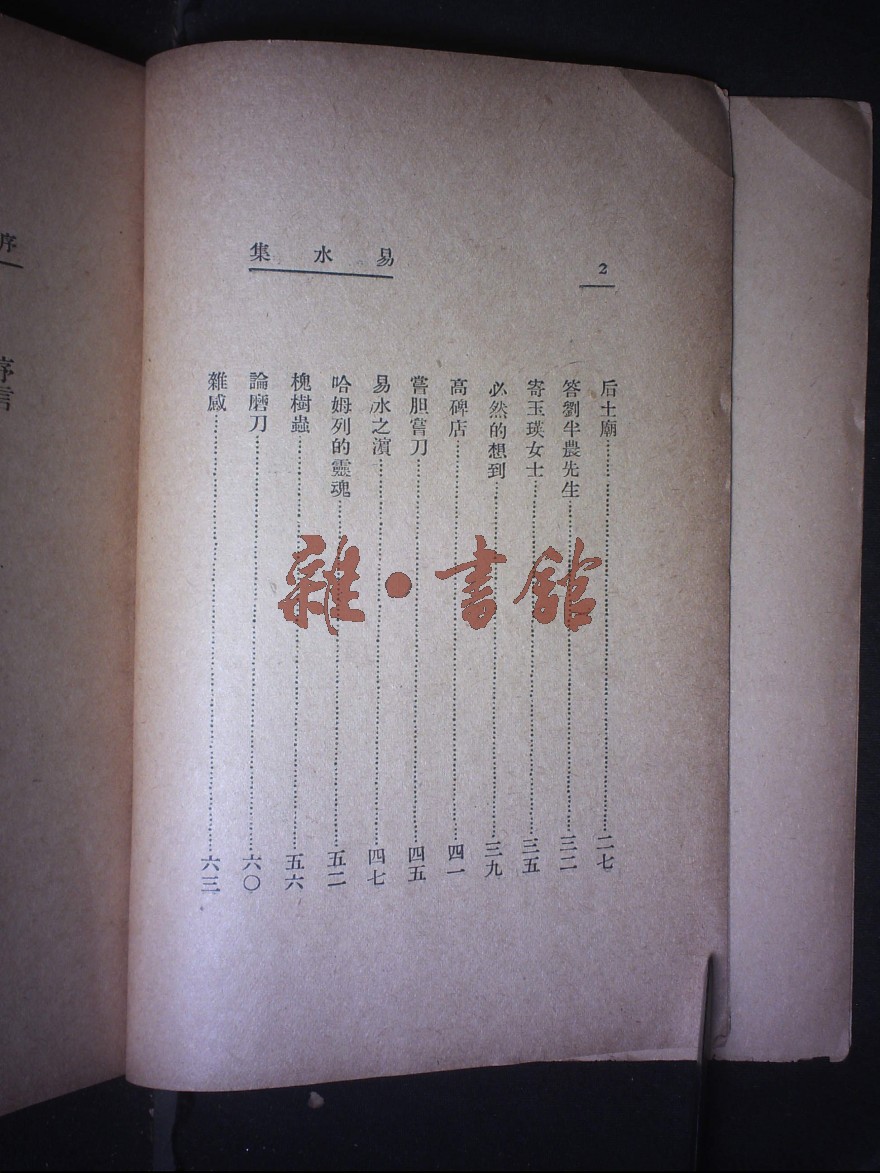 2
易水集
后土廟 二七
答劉半農先生 三二
寄玉瑛女士 三五
必然的想到 三九
高碑店 四一
嘗胆嘗刀 四五
易水之濱 四七
哈姆列的靈魂 五二
槐樹蟲 五六
論磨刀 六〇
雜感 六三
序
序言
雜·書館